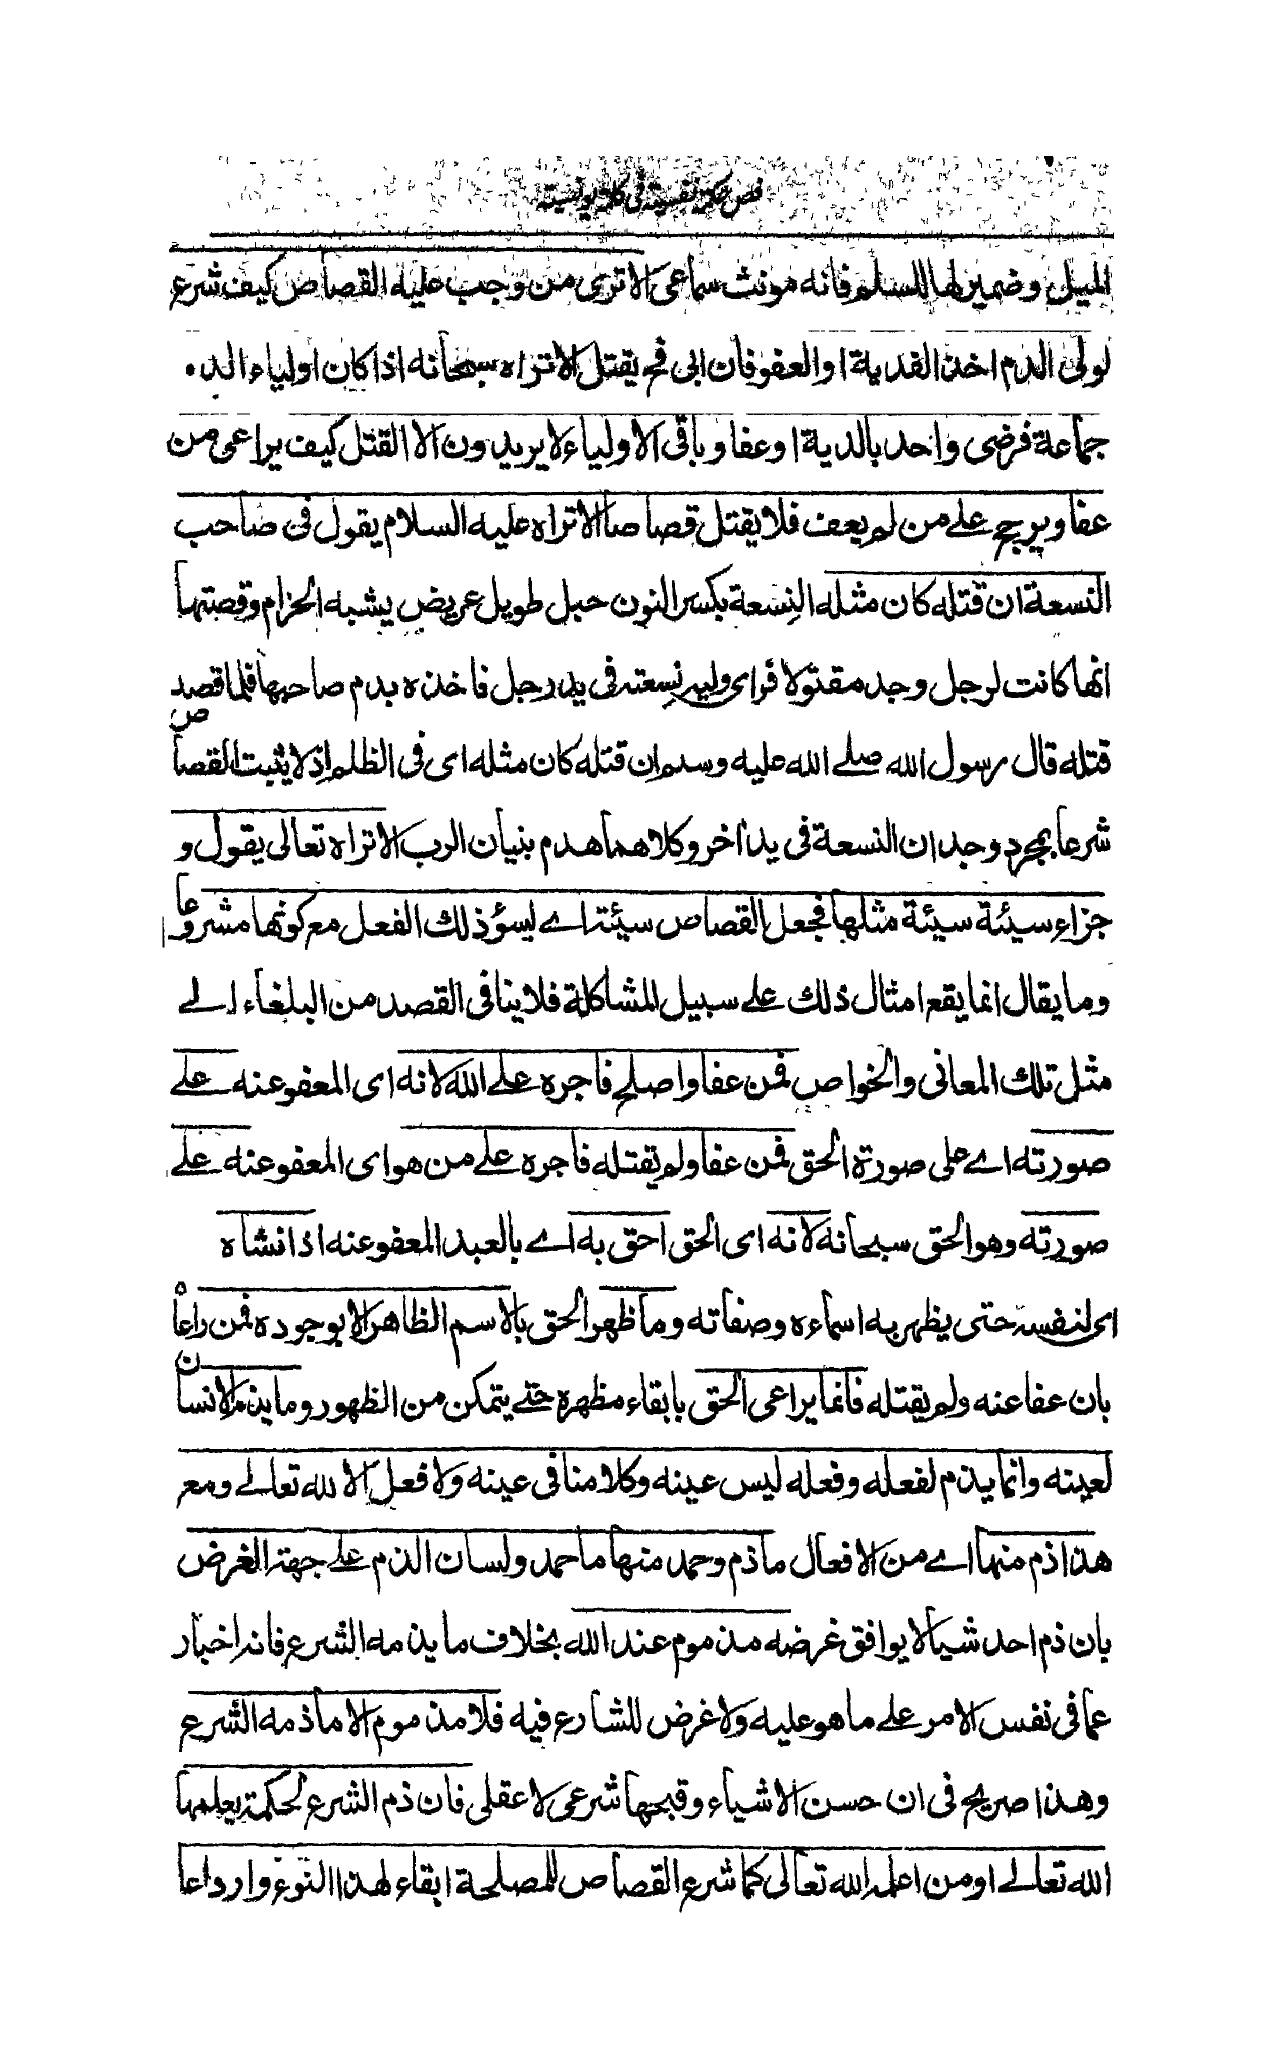 فص حكمة نفسية في كلمة يونسية
الميل وضمير لها للسلم فانه مونث سماعى الا ترى من وجب عليه القصاص كيف شرع
لولى الدم اخذ الفدية او العفو فان ابى فح يقتل الا تراه سبحانه اذا كان اولياء الدم
جماعة فرضى واحد بالدية او عفا وباقى الاولياء لا يريدون الا القتل كيف يراعى من
عفا ويرجح على من لم يعف فلا يقتل قصاصا الا تراه عليه السلام يقول فى صاحب
النسعة ان قتله كان مثله النِسعة بكسر النون حبل طويل عريض يشبه الحزام وقصتها
انها كانت لرجل وجد مقتولا فراى وليه نسعته فى يد رجل فاخذه بدم صاحبها فلما قصد
قتله قال رسول الله صلے الله عليه وسلم ان قتله كان مثله اى فى الظلم اذ لا يثبت القصاص
شرعا بمجرد وجدان النسعة فى يد اخر وكلاهما هدم بنيان الرب الا تراه تعالى يقول و
جزاء سيئة سيئة مثلها فجعل القصاص سيئة اے يسؤ ذلك الفعل مع كونها مشروعا
وما يقال انما يقع امثال ذلك علے سبيل المشاكلة فلا ينافى القصد من البلغاء الے
مثل تلك المعانى والخواص فمن عفا واصلح فاجره علے الله لانه اى المعفو عنه علے
صورته اے على صورة الحق فمن عفا ولم يقتله فاجره علے من هو اى المعفو عنه علے
صورته وهو الحق سبحانه لانه اى الحق احق به اے بالعبد المعفو عنه اذ انشاه
اى لنفسه حتى يظهر به اسماءه وصفاته وما ظهر الحق بالاسم الظاهر الا بوجوده فمن راعاه
بان عفا عنه ولم يقتله فانما يراعى الحق بابقاء مظهره حتے يتمكن من الظهور وما يذم الانسان
لعينه وانما يذم لفعله وفعله ليس عينه وكلامنا فى عينه ولا فعل الا لله تعالے ومع
هذا ذم منها اے من الافعال ما ذم وحمد منها ما حمد ولسان الذم علے جهة الغرض
بان ذم احد شيأ لا يوافق غرضه مذموم عند الله بخلاف ما يذمه الشرع فانه اخبار
عما فى نفس الامر علے ما هو عليه ولا غرض للشارع فيه فلا مذموم الا ما ذمه الشرع
وهذا صريح فى ان حسن الاشياء وقبحها شرعى لا عقلى فان ذم الشرع لحكمة يعلمها
الله تعالے او من اعلمه الله تعالى كما شرع القصاص للمصلحة ابقاء لهذا النوع وارداعا